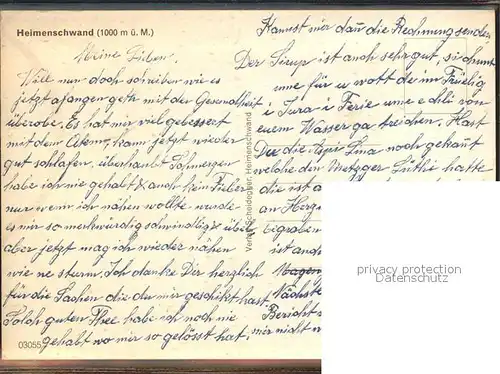 Heimenschwand (1000 m ü. M.)
Meine Lieben.
Will nun doch schreiben wie es
jetzt afangen geth mit der Gesundheit
überobe. Es hat mir viel gebessert
mit dem Atem, kann jetzt wieder
gut schlafen, überhaubt Schmerzen
habe ich nie gehabt & auch kein Fieber
nur wenn ich nähen wollte wurde
es mir so merkwürdig schwindlig & übel
aber jetzt mag ich wieder nähen
wie ne sturm. Ich danke Dir herzlich
für die Sachen die du mir geschikt hast
Solch guten Thee habe ich noch nie
gehabt wo mir so gelösst hat,
03055
Verlag Scheidegger, Heimenschwand
Kannst mir dan die Rechnung senden
Der Sirup ist auch sehr gut, si chunt
ume für u wott de im Früelig
i Jura i Ferie ume e chli von
euem Wasser ga treichen. Hast
Du die Lina noch gekant
welche den Metzger Lüthi hatte
die ist a
an Herz
bigraben
ist auch
Magen
Nächste
Bericht
mir nicht
privacy protection
Datenschutz